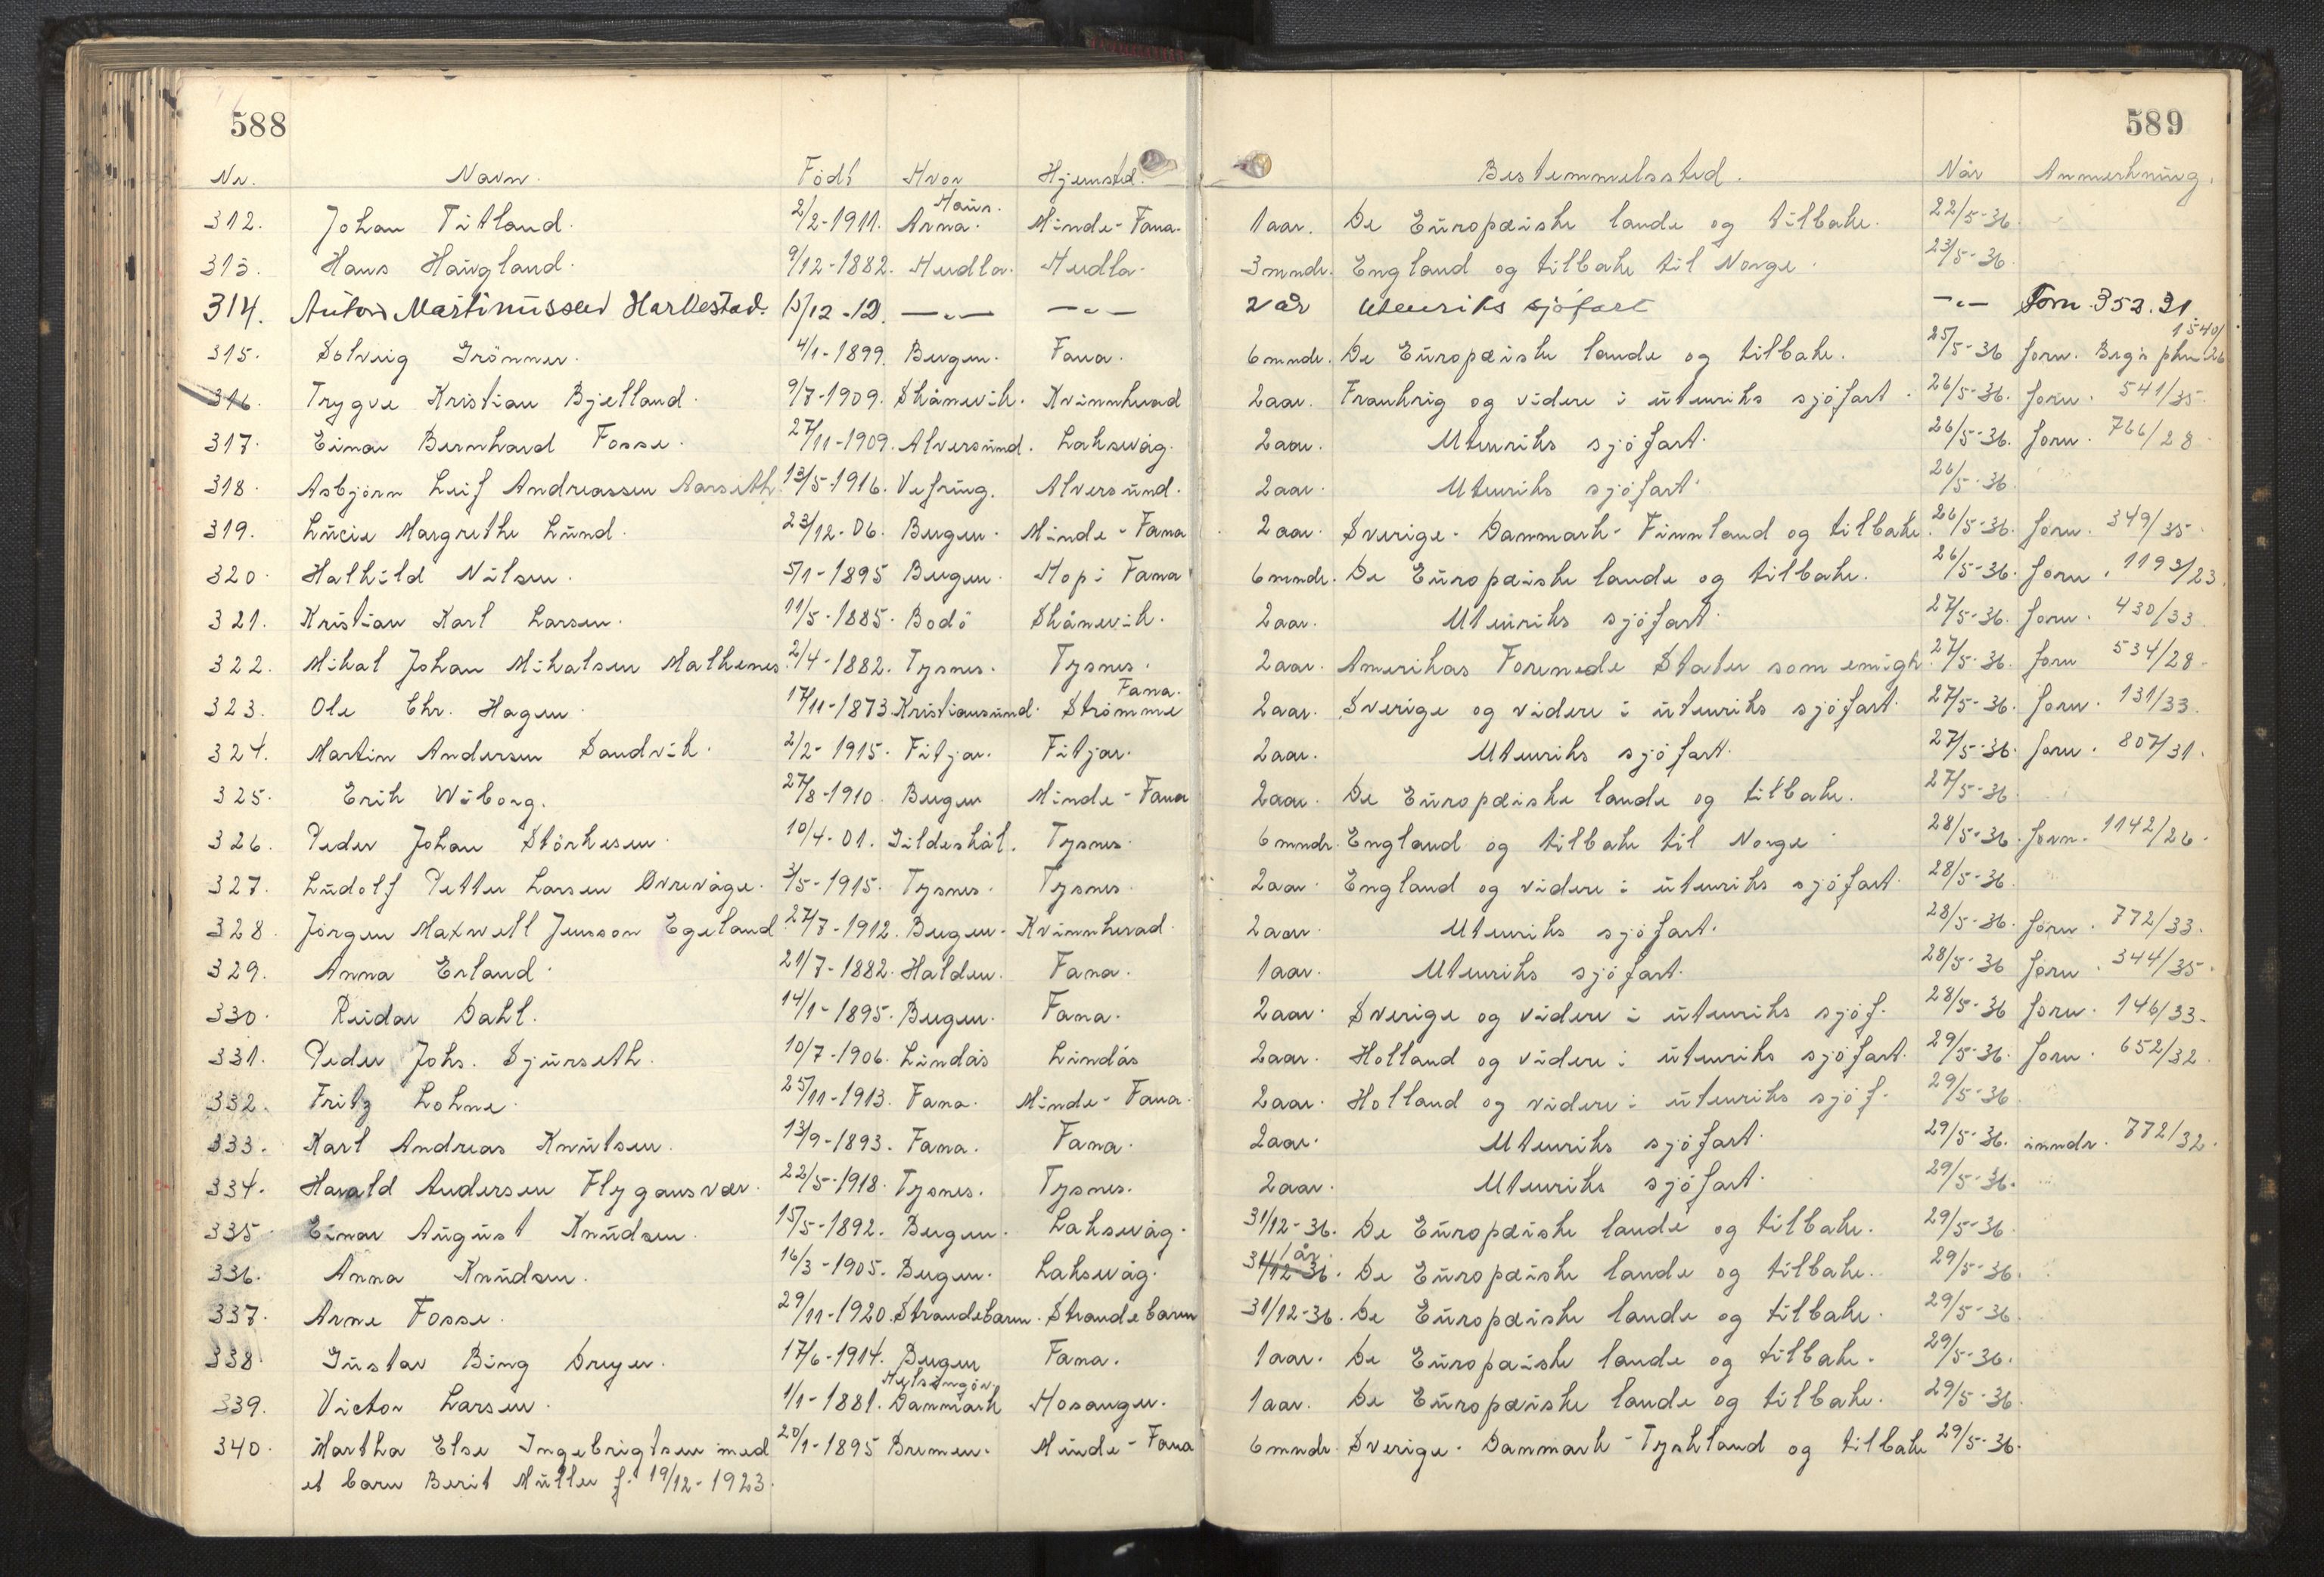 588
589
Nr. Navn. Födt Hvor Hjemsted. Bestemmelssted. Når Anmerkning.
312. Johan Titland. 2/2-1911. Haus. Arna. Minde-Fana. 1 aar. De Europæiske lande og tilbake. 22/5-36.
313. Hans Haugland. 9/12-1882. Hudla. Hudla. 3 mndr. England og tilbake til Norge. 23/5-36.
314. Anton Martinussen Harkestad. 15/12-12. —"— —"— 2 år Utenriks sjøfart —"— Forn. 352.31.
315. Solveig Grönner. 4/1-1899. Bergen. Fana. 6 mndr. De Europæiske lande og tilbake. 25/5-36 forn. Berg's pkm. 1540/26
316. Trygve Kristian Bjelland. 9/7-1909. Skånevik. Kvinnherad 2 aar. Frankrig og videre i utenriks sjöfart. 26/5-36. forn. 541/35.
317. Einar Bernhard Fosse. 27/11-1909. Alversund. Laksevåg. 2 aar. Utenriks sjöfart. 26/5-36. forn. 766/28.
318. Asbjörn Leif Andreassen Aarseth 13/5-1916. Vefring. Alversund. 2 aar. Utenriks sjöfart. 26/5-36.
319. Lucie Margrethe Lund. 23/12-06. Bergen. Minde-Fana 2 aar. Sverige-Danmark-Finnland og tilbake. 26/5-36. forn. 349/35.
320. Halhild Nilsen. 5/1-1895 Bergen. Hop i Fana 6 mndr. De Europæiske lande og tilbake. 26/5-36. forn. 1193/23.
321. Kristian Karl Larsen. 11/5-1885. Bodö Skånevik. 2 aar. Utenriks sjöfart. 27/5-36. forn. 430/33.
322. Mikal Johan Mikalsen Malkenes. 2/4-1882. Tysnes. Tysnes. 2 aar. Amerikas Forenede Stater som emigr. 27/5-36. forn 534/28.
323. Ole Chr. Hagen. 17/11-1873. Kristiansund. Fana. Strömme 2 aar. Sverige og videre i utenriks sjöfart. 27/5-36. forn. 131/33.
324. Martin Andersen Sandvik. 2/2-1915. Fitjar. Fitjar. 2 aar. Utenriks sjöfart. 27/5-36. forn. 807/31.
325. Erik Wiborg. 27/8-1910. Bergen Minde-Fana 2 aar. De Europæiske lande og tilbake. 27/5-36.
326. Peder Johan Störkesen. 10/4-01. Gildeskål. Tysnes. 6 mndr. England og tilbake til Norge 28/5-36. forn. 1142/26.
327. Ludolf Petter Larsen Övrevåge. 3/5-1915. Tysnes. Tysnes. 2 aar. England og videre i utenriks sjöfart. 28/5-36.
328. Jörgen Maxwell Jensson Egeland. 27/7-1912. Bergen. Kvinnherad. 2 aar. Utenriks sjöfart. 28/5-36. forn. 772/33.
329. Anna Erland. 21/7-1882. Halden. Fana. 1 aar. Utenriks sjöfart. 28/5-36 forn. 344/35.
330. Reidar Dahl. 14/1-1895. Bergen. Fana. 2 aar. Sverige og videre i utenriks sjöf. 28/5-36 forn. 146/33.
331. Peder Johs. Sjurseth. 10/7-1906. Lindås Lindås 2 aar. Holland og videre i utenriks sjöfart. 29/5-36. forn. 652/32.
332. Fritz Lohne. 25/11-1913. Fana. Minde-Fana. 2 aar. Holland og videre i utenriks sjöf. 29/5-36.
333. Karl Andreas Knutsen. 13/9-1893. Fana. Fana. 2 aar. Utenriks sjöfart. 29/5-36. inndr. 772/32.
334. Harald Andersen Flygansvær. 22/5-1918. Tysnes. Tysnes. 2 aar. Utenriks sjöfart. 29/5-36.
335. Einar August Knudsen. 15/5-1892. Bergen. Laksevåg. 31/12-36. De Europæiske lande og tilbake. 29/5-36.
336. Anna Knudsen. 16/3-1905. Bergen. Laksevåg. 31/12-36. 1 år. De Europæiske lande og tilbake. 29/5-36.
337. Arne Fosse. 29/11-1920. Strandebarm. Strandebarm 31/12-36. De Europæiske lande og tilbake. 29/5-36.
338. Gustav Bing Dreyer. 17/6-1914. Bergen Fana. 1 aar. De Europæiske lande og tilbake. 29/5-36.
339. Victor Larsen. 1/1-1881. Helsingör. Danmark Hosanger. 1 aar. De Europæiske lande og tilbake. 29/5-36.
340. Martha Else Ingebrigtsen med 20/1-1895 Bremen. Minde-Fana 6 mndr. Sverige-Danmark-Tyskland og tilbake 29/5-36.
et barn Berit Müller f. 19/12-1923.